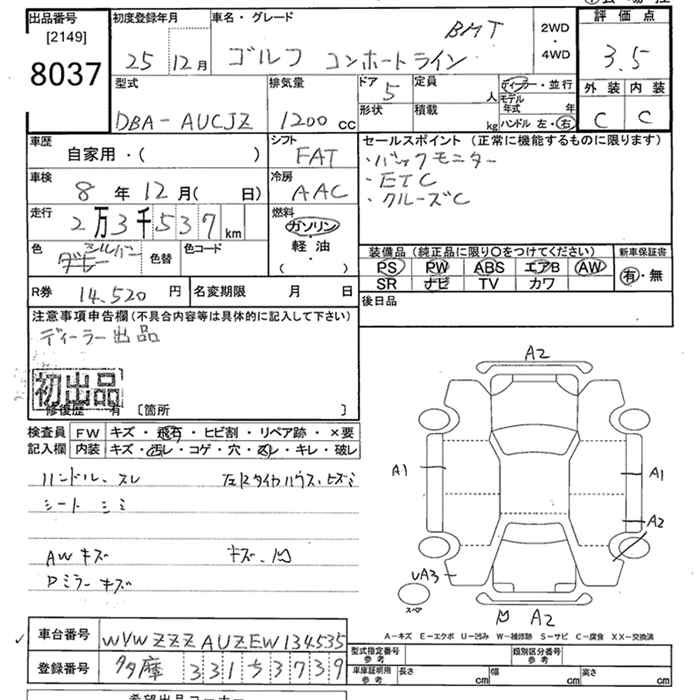 出品番号 [2149] 8037
初度登録年月 25 12月
車名・グレード BMT
ゴルフ コンホートライン
2WD・4WD
評価点 3.5
外装 内装
C C
型式 DBA-AUCJZ
排気量 1200 cc
ドア 5 定員 人
形状 積載 kg
ディーラー・並行
モデル年式 年
ハンドル 左・右
車歴 自家用・( )
シフト FAT
車検 8年12月( 日)
冷房 AAC
走行 2万3千537km
燃料 ガソリン 軽油 ( ・ )
色 グレー シルバー 色替 色コード
R券 14,520円 名変期限 月 日
セールスポイント(正常に機能するものに限ります)
・バックモニター
・ETC
・クルーズC
装備品(純正品に限り○をつけてください) 新車保証書
PS PW ABS エアB AW 有・無
SR ナビ TV カワ
後日品
注意事項申告欄(不具合内容等は具体的に記入して下さい)
ディーラー出品
初出品
修復歴 有 [箇所 ]
検査員 FW キズ・飛石・ヒビ割・リペア跡・×要
記入欄 内装 キズ・汚レ・コゲ・穴・スレ・キレ・破レ
ハンドル、スレ
シート シミ
AWキズ キズ、凹
Dミラーキズ
A2
A1 A1
A2
UA3
スペア
凹 A2
A-キズ E-エクボ U-凹み W-補修跡 S-サビ C-腐食 XX-交換済
車台番号 WVWZZZAUZEW134535
登録番号 多摩 331 す 3739
型式指定番号 参考 類別区分番号 参考
車庫証明用 参考 長さ cm 幅 cm 高さ cm
希望出品コーナー